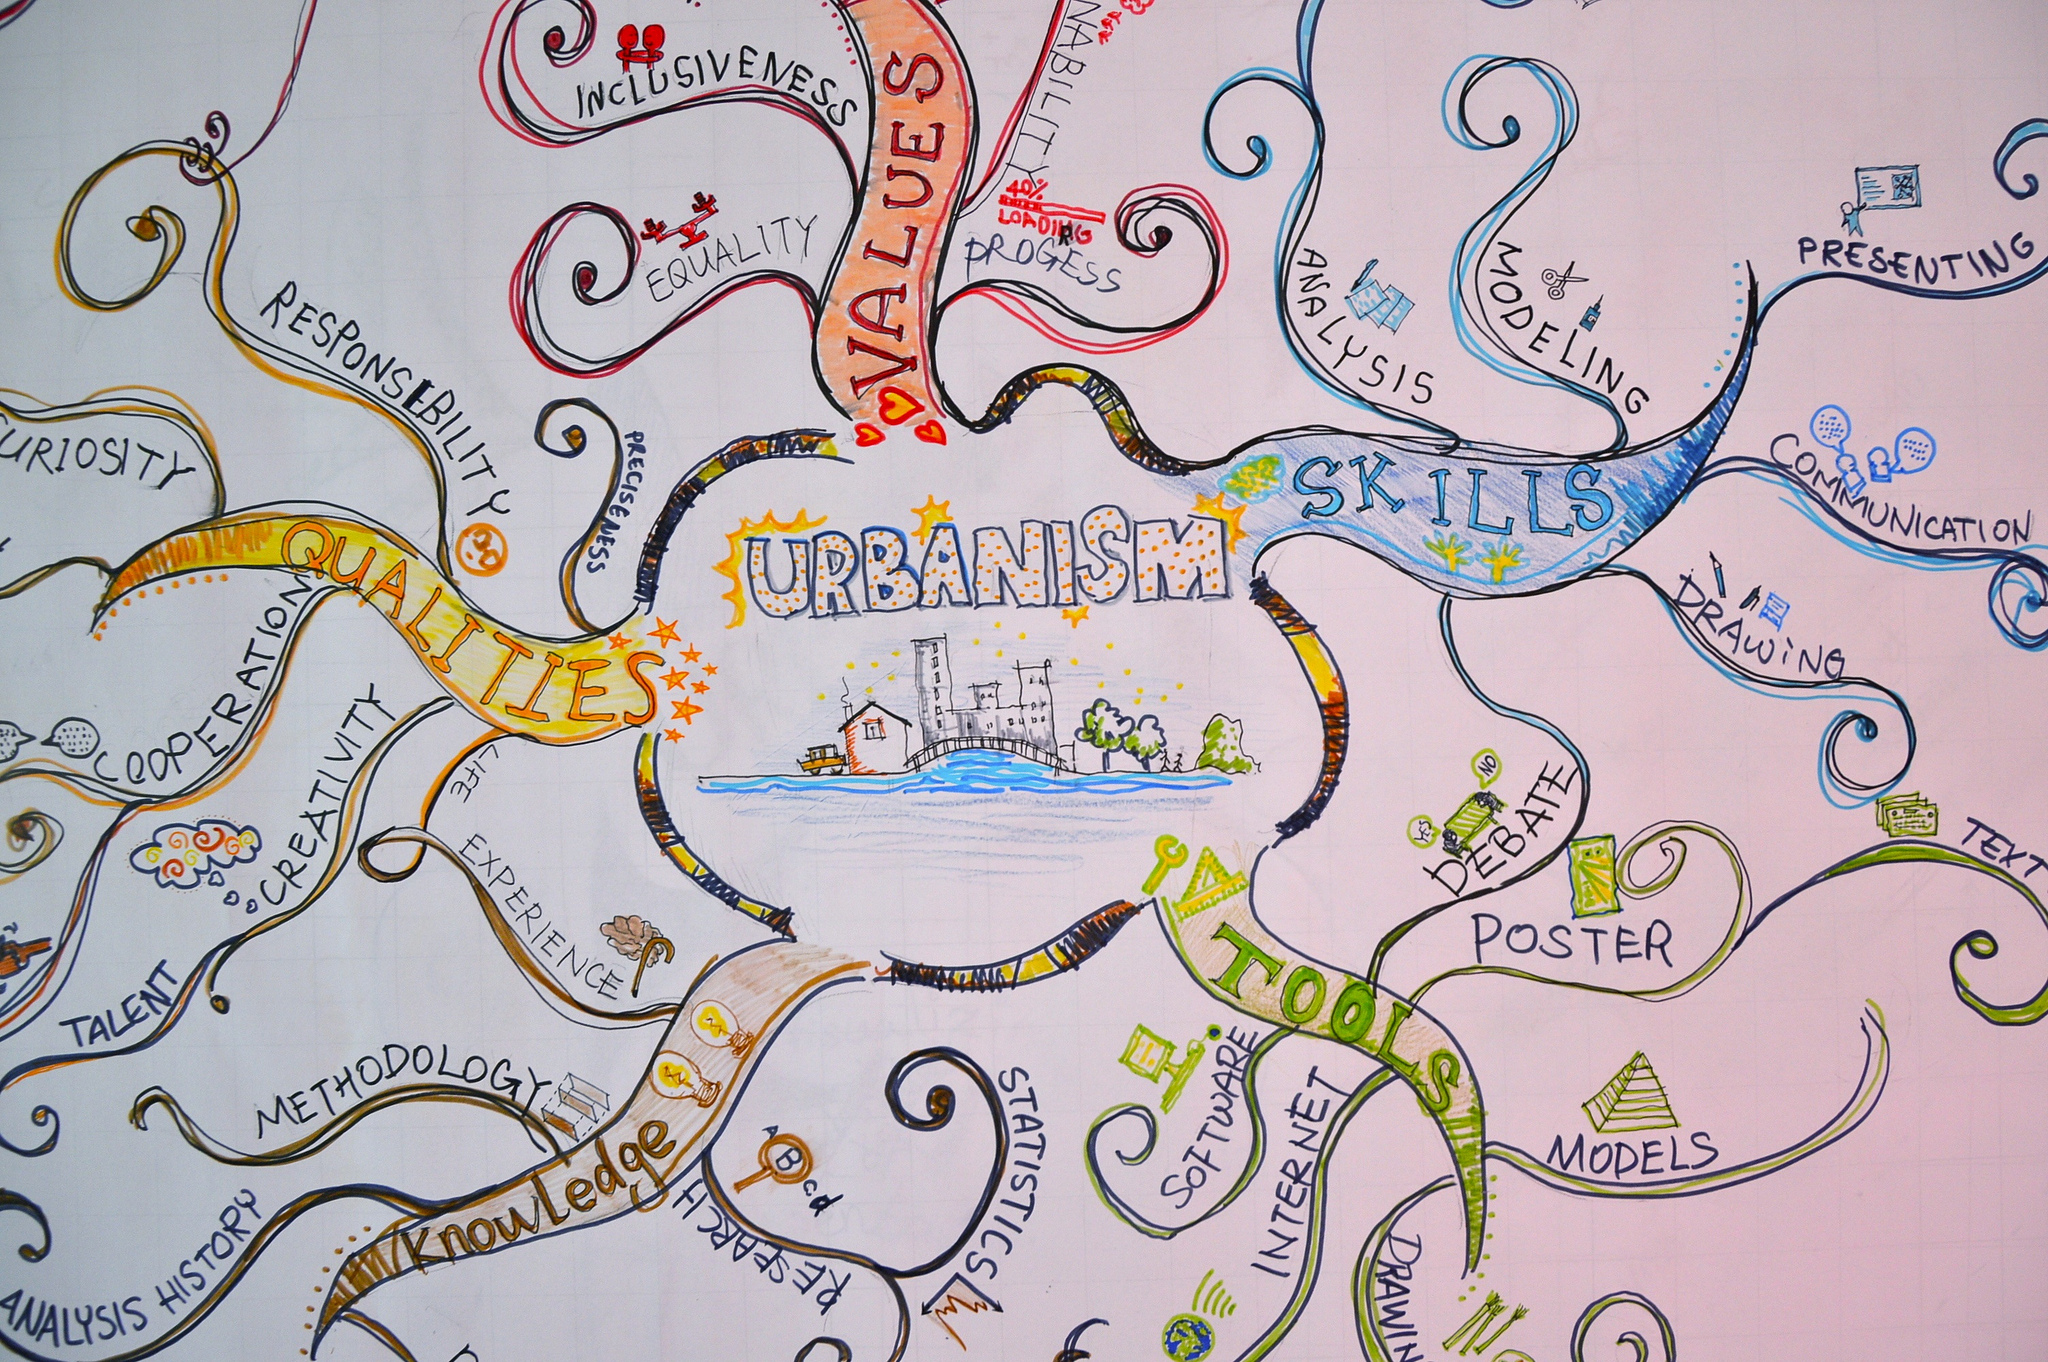 URBANISM
VALUES
INCLUSIVENESS
EQUALITY
NABILITY
40%
LOADING
PROGESS
SKILLS
ANALYSIS
MODELING
PRESENTING
COMMUNICATION
DRAWiNG
DEBATE
NO
YES
TOOLS
POSTER
TEXT
MODELS
DRAWIN
INTERNET
SOFTWARE
Knowledge
STATISTICS
RESEARCH
A
B
c
d
LIFE
EXPERIENCE
METHODOLOGY
ANALYSIS HISTORY
QUALITIES
PRECISENESS
RESPONSEBILITY
URIOSITY
COOPERATION
CREATIVITY
TALENT